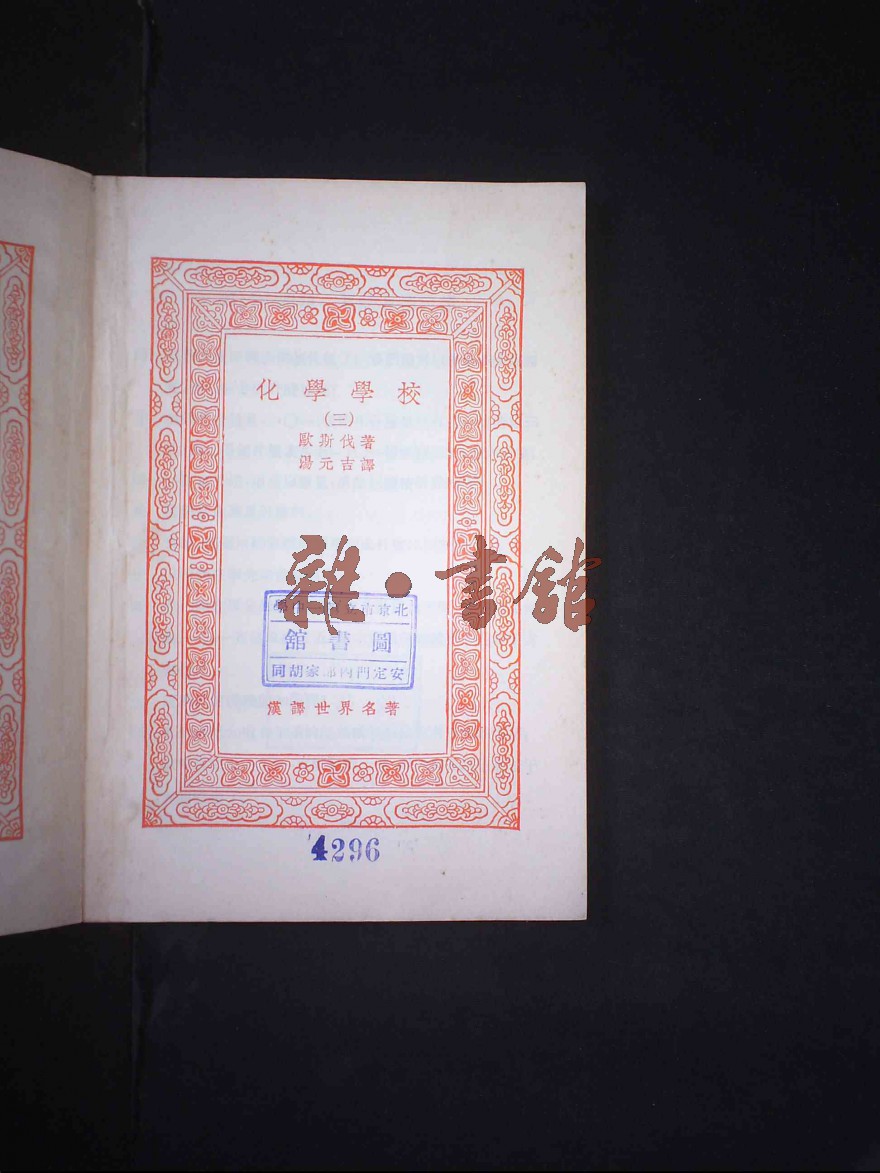 化學學校
(三)
歐斯伐著
湯元吉譯
雜·書館
北京市
圖書館
安定門內 家胡同
漢譯世界名著
4296